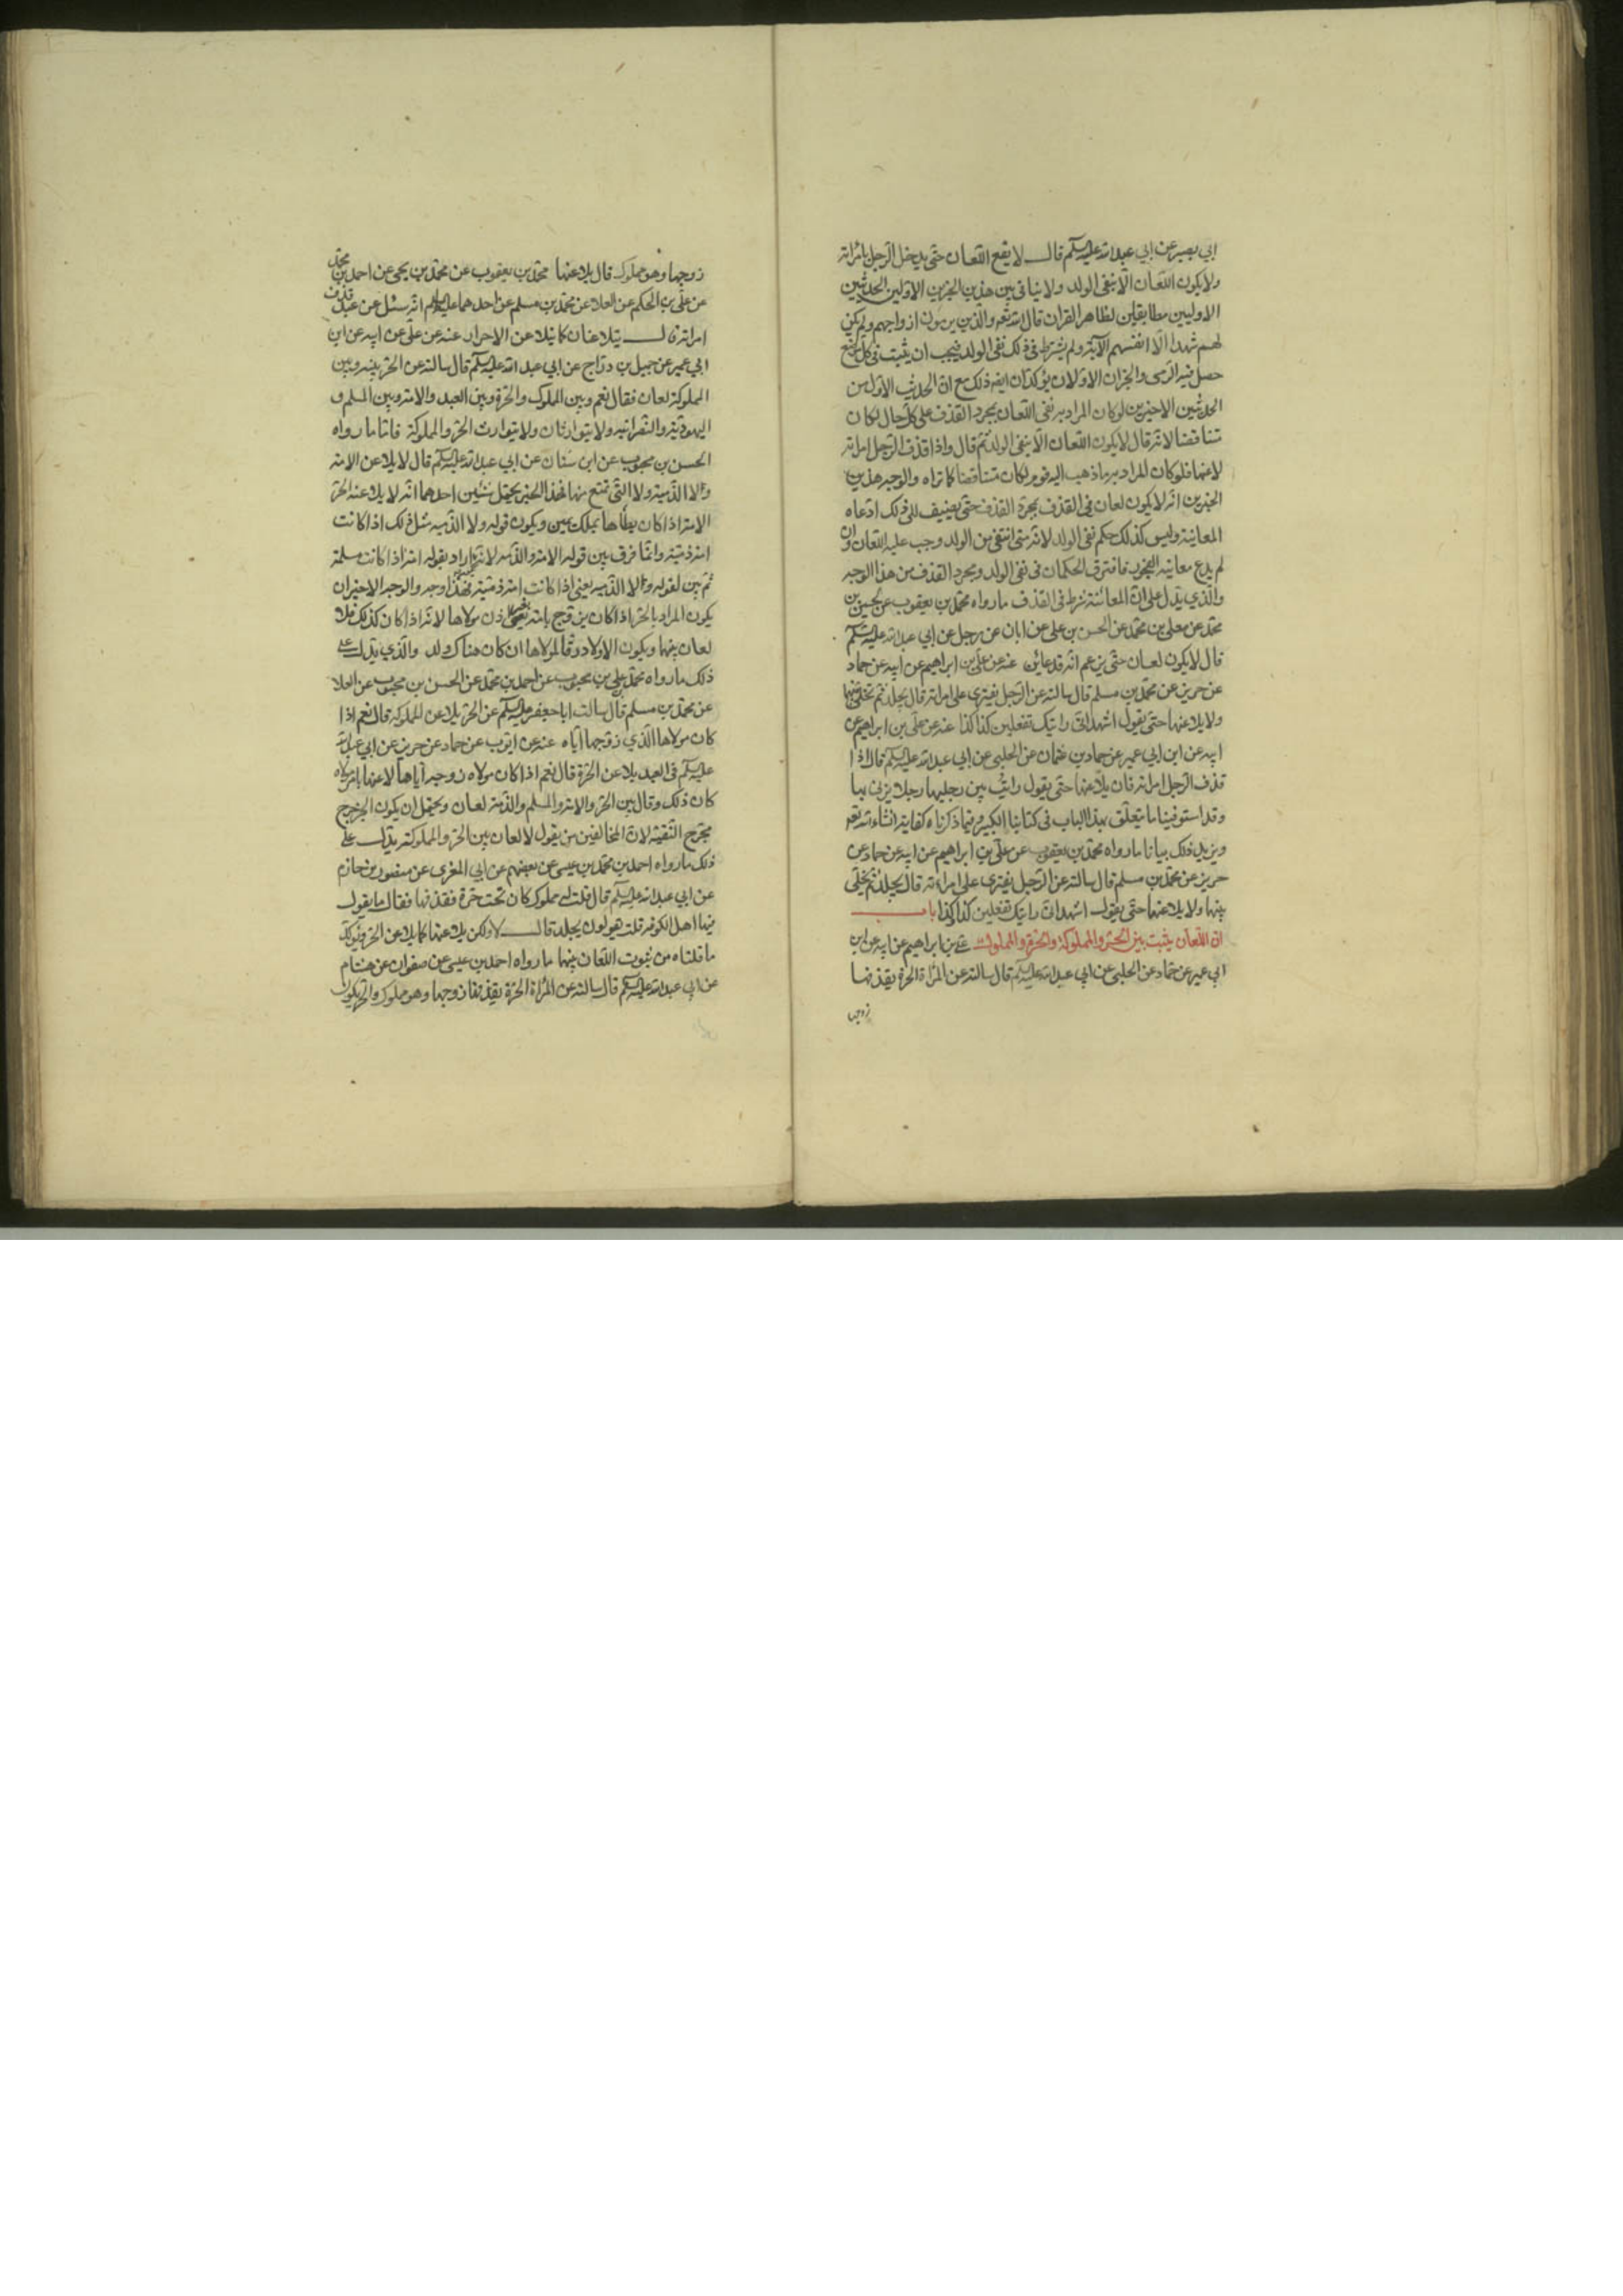 ابي بصير عن ابي عبد الله عليه السلم قال لا يقع اللعان حتى يدخل الرجل بامراته
ولا يكون اللعان الا بنفي الولد ولا ينافي بين هذين الخبرين الاولين الحديثين
الاوليين مطابقين لظاهر القران قال الله تعه والذين يرمون ازواجهم ولم يكن
لهم شهدا الا انفسهم الآية ولم يشترط في ذلك نفي الولد فيجب ان يثبت في كل موضع
حصل فيه الرمى والخبران الاولان يؤكدان ايضه ذلك مع ان الحديث الاول من
الحديثين الاخيرين لو كان المراد به نفى اللعان بمجرد القذف على كل حال لكان
متناقضا لانه قال لا يكون اللعان الا بنفى الولد ثم قال واذا قذف الرجل امراته
لاعنها فلو كان المراد به ما ذهب اليه قوم لكان متناقضا كما تراه والوجه في هذين
الخبرين انه لا يكون لعان في القذف بمجرد القذف حتى يضيف الى ذلك ادعاه
المعاينة وليس كذلك حكم نفى الولد لانه متى انتفى من الولد وجب عليه اللعان وان
لم يدع معاينه الفجور فافترق الحكمان في نفى الولد وبمجرد القذف من هذا الوجه
والذي يدل على ان المعاينة شرط في القذف ما رواه محمد بن يعقوب عن الحسين بن
محمد عن معلى بن محمد عن الحسن بن على عن ابان عن رجل عن ابي عبد الله عليه السلم
قال لا يكون لعان حتى يزعم انه قد عاين عنه عن على بن ابراهيم عن ابيه عن حماد
عن حريز عن محمد بن مسلم قال سالته عن الرجل يفترى على امراته قال يجلد ثم يخلى بينهما
ولا يلاعنها حتى يقول اشهد انى رايتك تفعلين كذا كذا عنه عن على بن ابراهيم عن
ابيه عن ابن ابي عمير عن حماد بن عثمان عن الحلبي عن ابي عبد الله عليه السلم قال اذا
قذف الرجل امراته فان يلاعنها حتى يقول رايت بين رجليها رجلا يزنى بها
وقد استوفينا ما يتعلق بهذا الباب في كتابنا الكبير وفيما ذكرناه كفاية انشاء الله تعه
ويزيد ذلك بيانا ما رواه محمد بن يعقوب عن على بن ابراهيم عن ابيه عن حماد عن
حريز عن محمد بن مسلم قال سالته عن الرجل يفترى على امراته قال يجلد ثم يخلى
بينهما ولا يلاعنها حتى يقول اشهد انى رايتك تفعلين كذا كذا باب
ان اللعان يثبت بين الحر والمملوكة والحرة والمملوك على بن ابراهيم عن ابيه عن ابن
ابي عمير عن حماد عن الحلبي عن ابي عبد الله عليه السلم قال سالته عن المراة الحرة يقذفها
زوجها
زوجها وهو مملوك قال يلاعنها محمد بن يعقوب عن محمد بن يحيى عن احمد بن محمد
عن على بن الحكم عن العلا عن محمد بن مسلم عن احدهما عليه السلم انه سئل عن عبد قذف
امراته قال يتلاعنان كما يتلاعن الاحرار عنه عن على عن ابيه عن ابن
ابي عمير عن جميل بن دراج عن ابي عبد الله عليه السلم قال سالته عن الحر بينه وبين
المملوكة لعان فقال نعم وبين المملوك والحرة وبين العبد والامة وبين المسلم و
اليهودية والنصرانيه ولا يتوارثان ولا يتوارث الحر والمملوكة فاما ما رواه
الحسن بن محبوب عن ابن سنان عن ابي عبد الله عليه السلم قال لا يلاعن الحر الامة
ولا الذمية ولا التي تمتع بها فهذا الخبر يحتمل شيئين احدهما انه لا يلاعن الحر
الامة اذا كان يطأها بملك يمين ويكون قوله ولا الذميه مثل ذلك اذا كانت
امة ذمية وانما فرق بين قوله الامة والذميه لانه اراد بقوله امة اذا كانت مسلمة
ثم بين لقوله ولا الذميه يعنى اذا كانت امة ذمية فهذا وجه والوجه الاخر ان
يكون المراد بالخبر اذا كان يزوج بامة بغير اذن مولاها لانه اذا كان كذلك فلا
لعان بينهما ويكون الاولاد رقا لمولاها ان كان هناك ولد والذي يدل على
ذلك ما رواه محمد بن على بن محبوب عن احمد بن محمد عن الحسن بن محبوب عن العلا
عن محمد بن مسلم قال سالت ابا جعفر عليه السلم عن الحر يلاعن المملوكة قال نعم اذا
كان مولاها الذي زوجها اياه عنه عن ايوب عن حماد عن حريز عن ابي عبد الله
عليه السلم في العبد يلاعن الحرة قال نعم اذا كان مولاه زوجه اياها لاعنها بامر مولاه
كان ذلك وقال بين الحر والامة والمسلم والذمية لعان ويحتمل ان يكون الخبر خرج
مخرج التقيه لان المخالفين من يقول لا لعان بين الحر والمملوكة يدل على
ذلك ما رواه احمد بن محمد بن عيسى عن بعضهم عن ابي المغرى عن منصور بن حازم
عن ابي عبد الله عليه السلم قال قلت له مملوك كان تحت حرة فقذفها فقال ما يقول
فيها اهل الكوفة قلت هو لون يجلد قال لا ولكن يلاعنها كما يلاعن الحر ويؤكد
ما قلناه من ثبوت اللعان بينهما ما رواه احمد بن عيسى عن صفوان عن هشام
عن ابي عبد الله عليه السلم قال سالته عن المراة الحرة يقذفها زوجها وهو مملوك والحر يكون